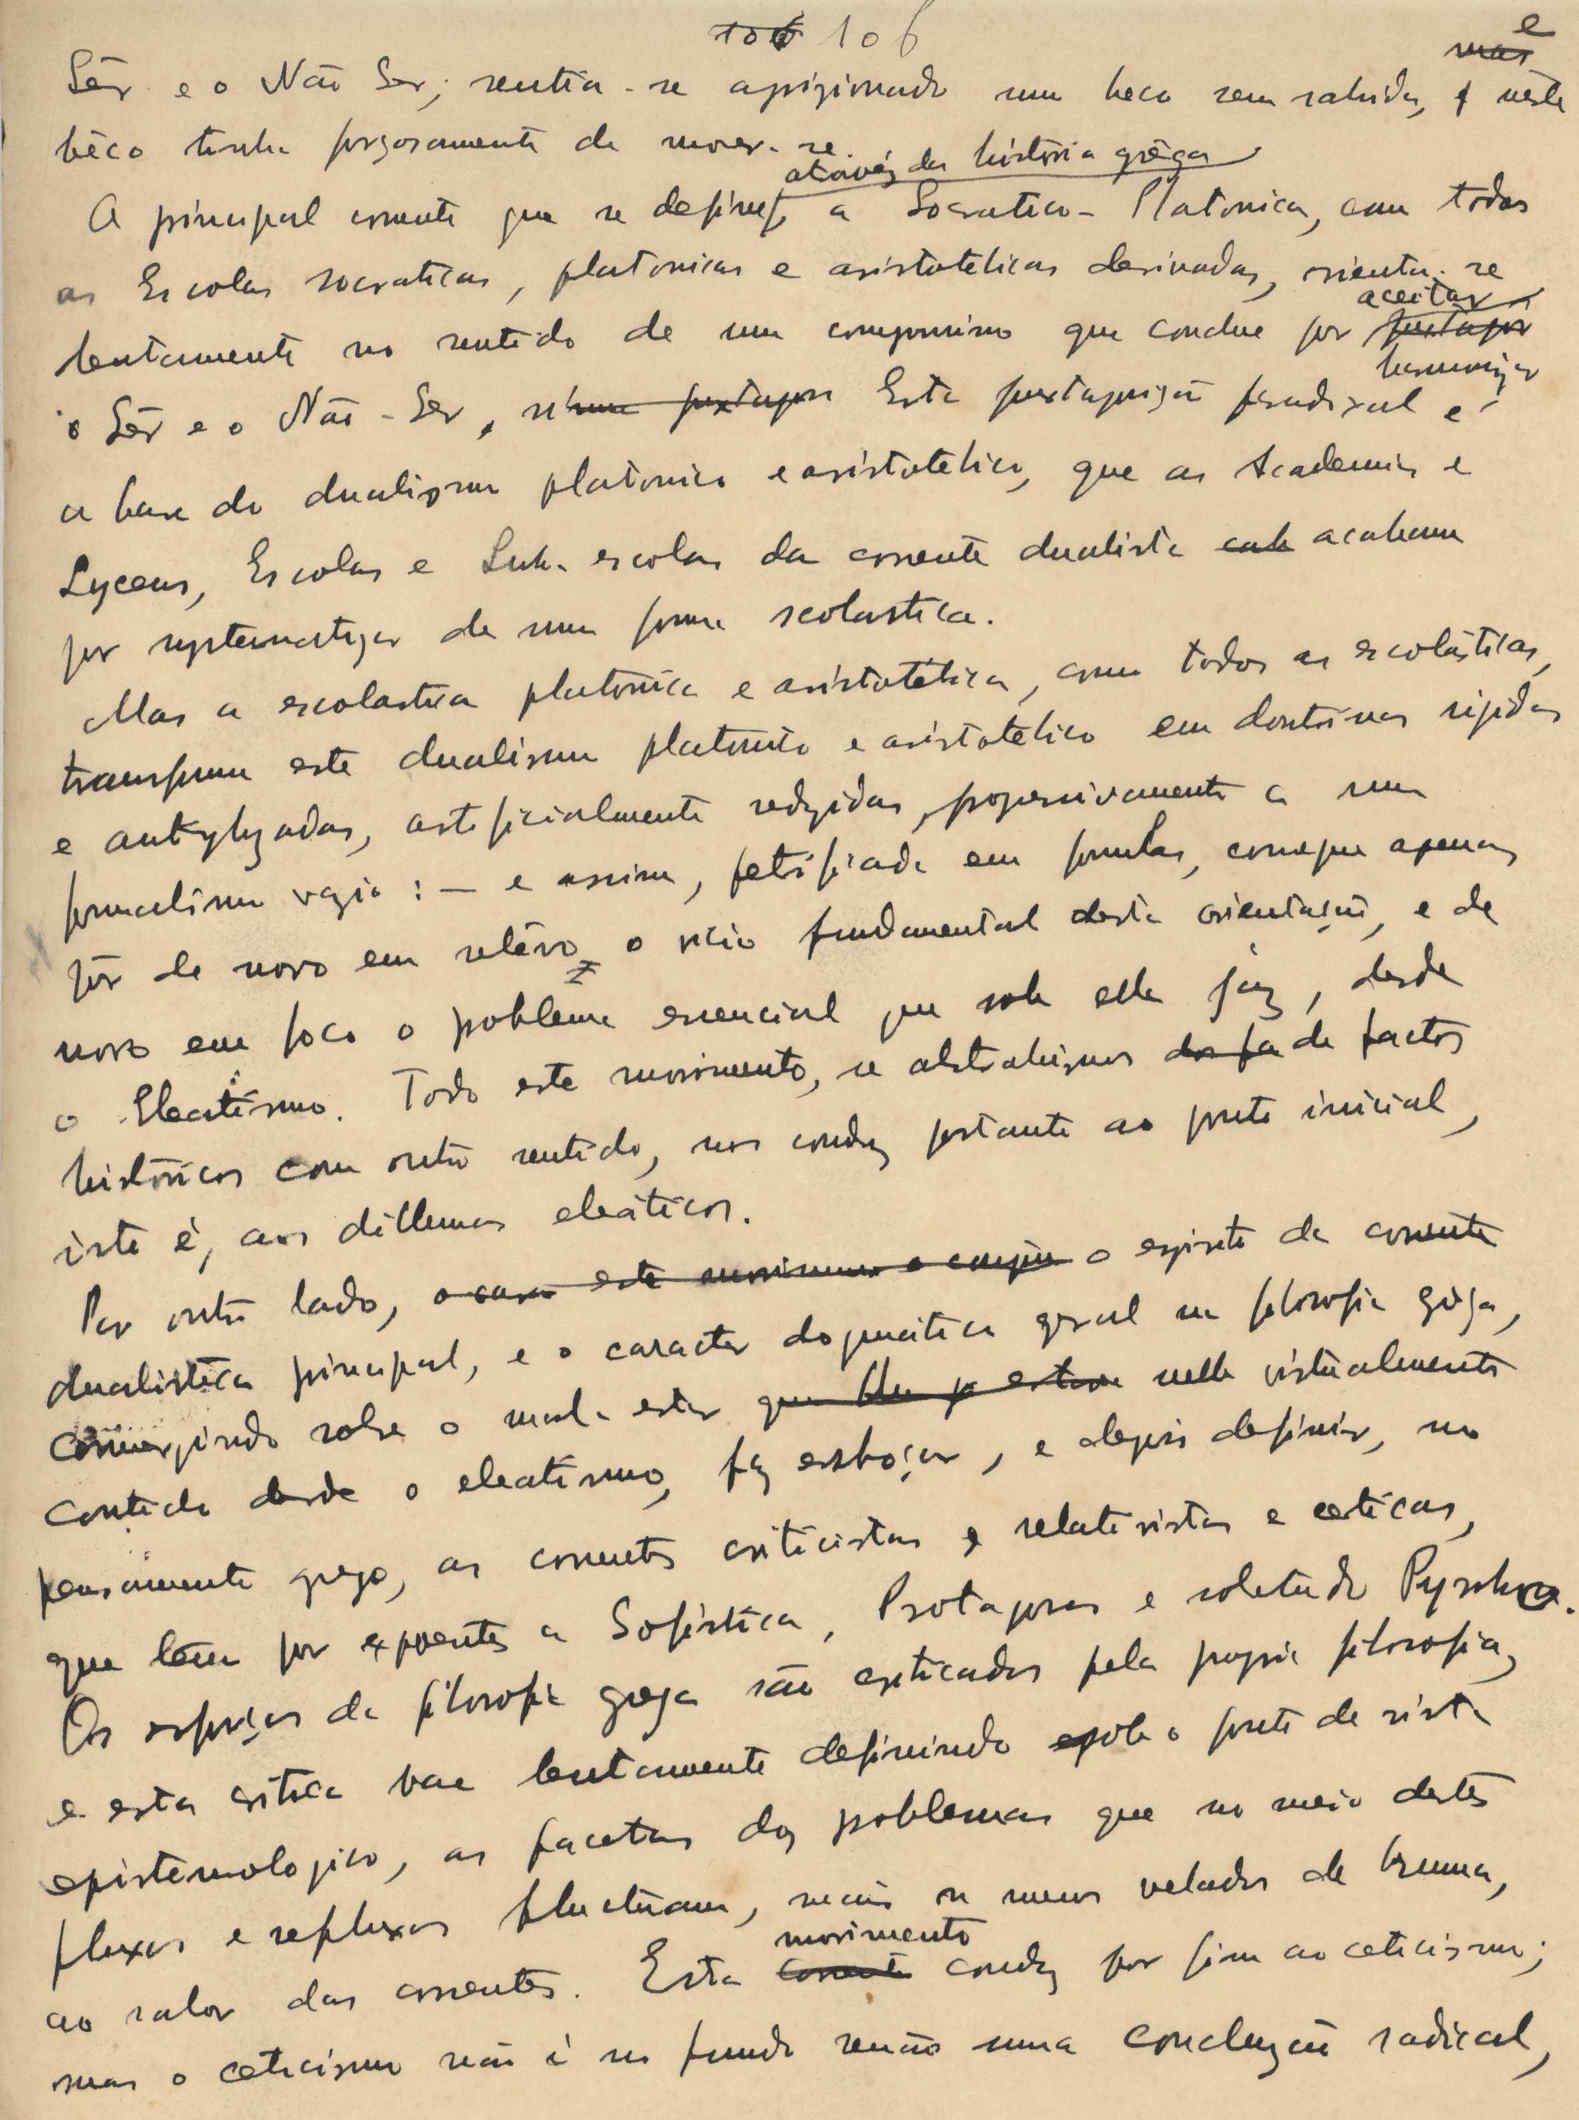 106 106
Sêr e o Não Ser; sentia-se aprizionado num beco sem sahida, ~~mas~~ e neste
bêco tinha forzosamente de mover-se.
através da história grêga
A principal corrente que se define, a Socratico-Platonica, com todas
as Escolas socraticas, platonicas e aristotelicas derivadas, orienta-se
aceitar
lentamente no sentido de um compromisso que conclue por ~~justapôr~~
harmonizar
o Sêr e o Não-Ser, ~~juxtapor~~ Esta juxtaposição paradoxal é
a base do dualismo platonico e aristotelico, que as Academias e
Lyceus, Escolas e Sub-escolas da corrente dualista ~~cab~~ acabam
por systematizar de uma forma scolastica.
Mas a escolastica platónica e aristotélica, como todas as escolásticas,
transforma este dualismo platónico e aristotélico em doutrinas rigidas
e ankylozadas, artificialmente redigidas, progressivamente a um
formalismo vazio: — e assim, petrificada em formulas, consegue apenas
pôr de novo em relêvo o vicio fundamental desta orientação, e de
novo em foco o problêma essencial que sob elle jaz, desde
o Eleatismo. Todo este movimento, se abstrahirmos ~~dos fa~~ de factos
históricos com outro sentido, nos conduz portanto ao ponto inicial,
isto é, aos dillemas eleáticos.
Por outro lado, ~~o caso este movimento e conjun~~ o espirito da corrente
dualistica principal, e o caracter dogmático geral na filosofia grêga,
convergindo sobre o mal-estar ~~que já estava~~ nelle virtualmente
contido desde o eleatismo, faz esboçar, e depois definir, no
pensamento grego, as correntes criticistas e relativistas e ceticas,
que têem por expoentes a Sofistica, Protagoras e sobretudo Pyrrho.
Os esforços da filosofia grega são criticados pela propria filosofia,
e esta critica vae lentamente definindo sob o ponto de vista
epistemologico, as facetas dos problemas que no meio destes
fluxos e refluxos fluctuam, mais ou menos velados de bruma,
movimento
ao sabor das correntes. Esta ~~corrente~~ conduz por fim ao ceticismo;
mas o ceticismo não é no fundo senão uma concluzão radical,